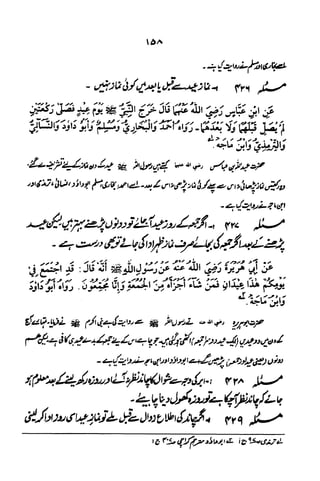 ۱۵۸
اسے بخاری اور مسلم نے روایت کیا ہے۔
مسئلہ ۴۲۶ :- نماز عید سے قبل یا بعد میں کوئی نماز نہیں۔
عَنِ ابْنِ عَبَّاسٍ رَضِيَ اللهُ عَنْهُمَا قَالَ خَرَجَ النَّبِيُّ ﷺ يَوْمَ عِيدٍ فَصَلَّى رَكْعَتَيْنِ
لَمْ يُصَلِّ قَبْلَهُمَا وَلَا بَعْدَهُمَا۔ رَوَاهُ أَحْمَدُ وَالْبُخَارِيُّ وَمُسْلِمٌ وَأَبُو دَاوُدَ وَالنَّسَائِيُّ
وَالتِّرْمِذِيُّ وَابْنُ مَاجَهْ
حضرت عبد اللہ بن عباس رضی اللہ عنہما کہتے ہیں رسول اللہ ﷺ عید کے دن نماز کے لئے تشریف لے گئے۔
دو رکعتیں نماز پڑھائی اور اس سے پہلے کوئی نماز پڑھی نہ اس کے بعد۔ اسے احمد، بخاری، مسلم، ابو داؤد، نسائی، ترمذی اور
ابن ماجہ نے روایت کیا ہے۔
مسئلہ ۴۲۷ :- اگر جمعہ کے روز عید آ جائے تو دونوں پڑھنے بہتر ہیں لیکن عید
پڑھنے کے بعد اگر جمعہ کی بجائے صرف نماز ظہر ادا کی جائے تو بھی درست ہے۔
عَنْ أَبِي هُرَيْرَةَ رَضِيَ اللهُ عَنْهُ عَنْ رَسُولِ اللهِ ﷺ أَنَّهُ قَالَ: قَدِ اجْتَمَعَ فِي
يَوْمِكُمْ هٰذَا عِيدَانِ فَمَنْ شَاءَ أَجْزَأَهُ مِنَ الْجُمُعَةِ وَإِنَّا مُجَمِّعُونَ۔ رَوَاهُ أَبُو دَاوُدَ
وَابْنُ مَاجَهْ
حضرت ابو ہریرہ رضی اللہ عنہ رسول اللہ ﷺ سے روایت کرتے ہیں نبی اکرم ﷺ نے فرمایا۔ تمہارے آج
کے دن میں دو عیدیں جو چاہے اس کے لئے جمعہ کے بدلے عید ہی کافی ہے لیکن ہم
دونوں پڑھیں گے۔ اسے ابو داؤد اور ابن ماجہ نے روایت کیا ہے۔
مسئلہ ۴۲۸ :- ابر کی وجہ سے شوال کا چاند نظر نہ آئے اور روزہ رکھ لینے کے بعد معلوم ہو
جائے کہ چاند نظر آ چکا ہے تو روزہ کھول دینا چاہیئے۔
مسئلہ ۴۲۹ :- اگر چاند کی اطلاع زوال سے قبل ملے تو نماز عید اسی روز ادا کر لینی